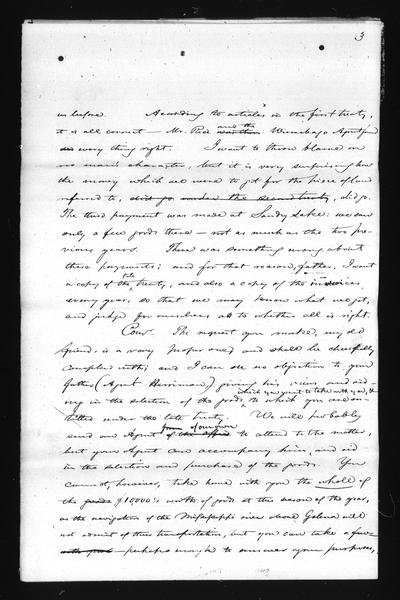 3
us before. According to articles in the first treaty,
it is all correct — Mr. Rice and the Winnebago Agent found
every thing right. I want to throw blame on
no man's character, but it is very surprising how
the money which we were to get for the piece of land
referred to, did go under the second treaty, did go.
The third payment was made at Sandy Lake: we saw
only a few goods there — not as much as the two pre-
vious years. There was something wrong about
these payments; and for that reason, father, I want
a copy of the late treaty, and also a copy of the invoices,
every year, so that we may know what we get,
and judge for ourselves as to whether all is right.
Comr. The request you make, my old
friend, is a very proper one, and shall be cheerfully
complied with; and I can see no objection to your
father (Agent Harriman) giving his views and aid-
ing in the selection of the goods, which you want to take with you, & to which you are en-
titled under the late treaty. We will probably
send an Agent from of our own to attend to the matter,
but your Agent can accompany him, and aid
in the selection and purchase of the goods. You
cannot, however, take home with you the whole of
the goods $10,000's worth of goods at this season of the year,
as the navigation of the Mississippi river above Galena will
not admit of their transportation, but you can take a few
perhaps enough to answer your purposes,